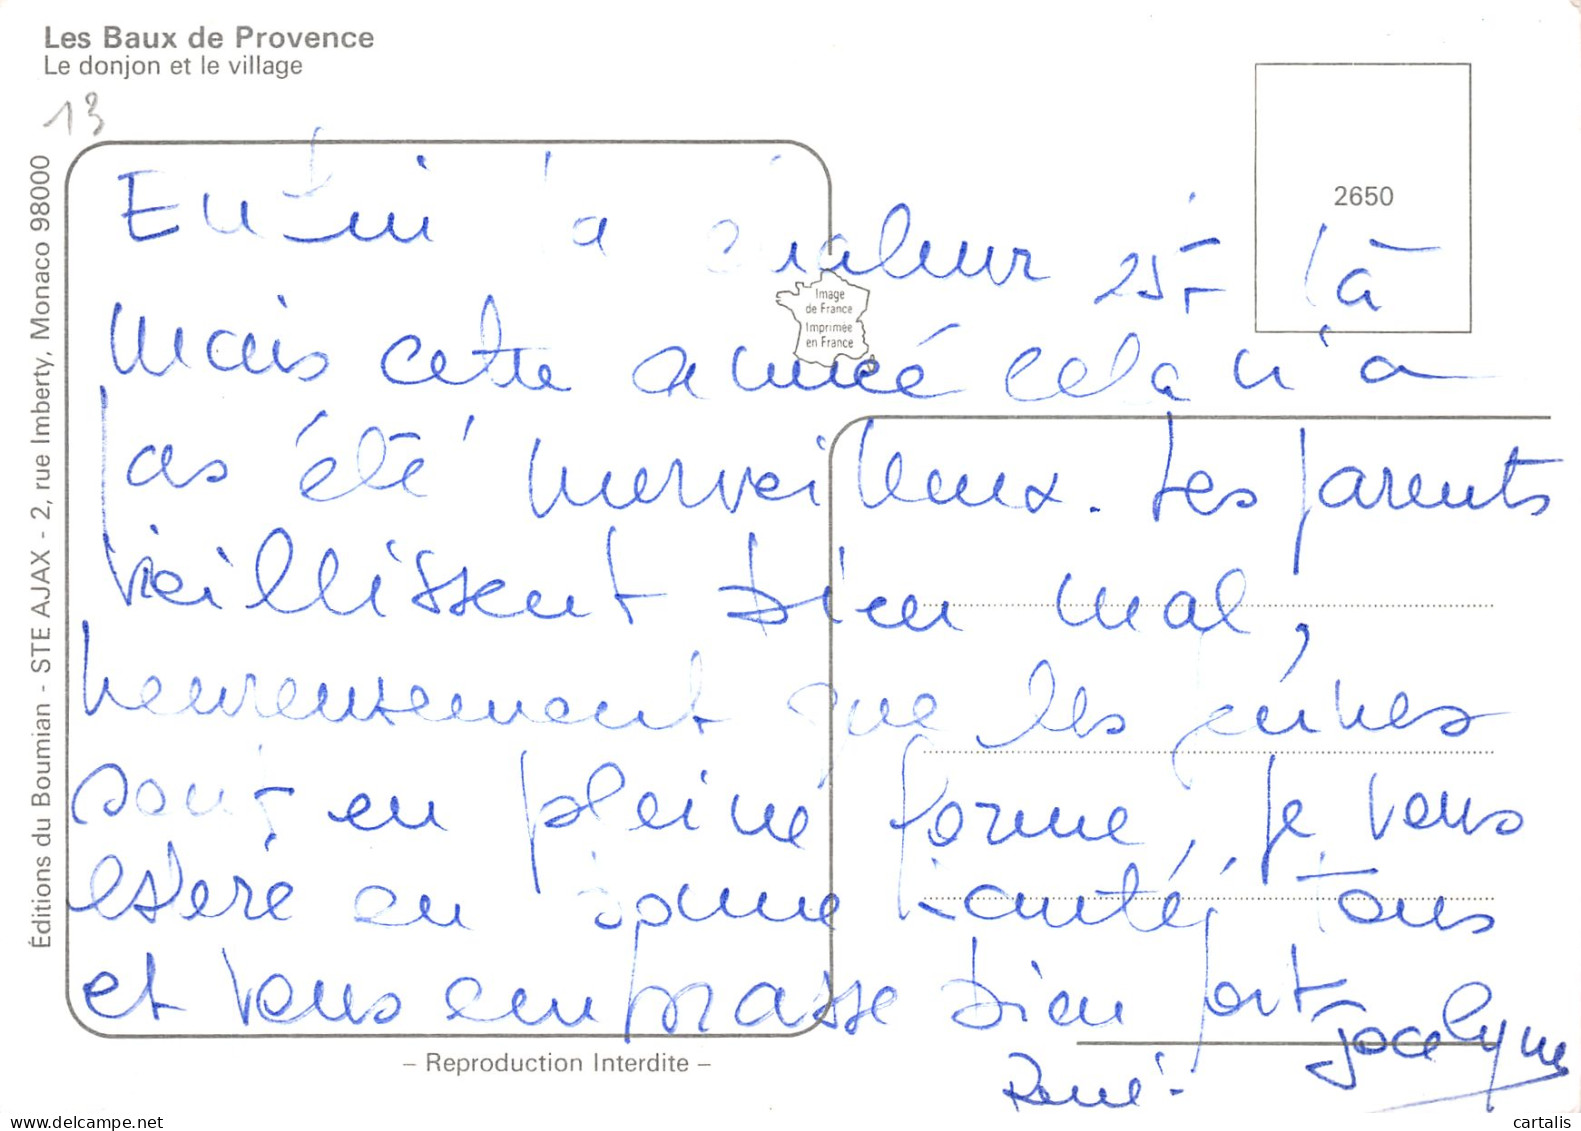 Les Baux de Provence
Le donjon et le village
13
2650
Éditions du Boumian - STE AJAX - 2, rue Imberty, Monaco 98000
Image
de France
Imprimée
en France
Enfin la chaleur 25° là
mais cette année cela n'a
pas été merveilleux. Les parents
vieillissent bien mal,
heureusement que les jeunes
sont en pleine forme, je vous
espère en bonne santé, tous
et vous embrasse bien fort
Jocelyne
René
– Reproduction Interdite –
cartalis
delcampe.net